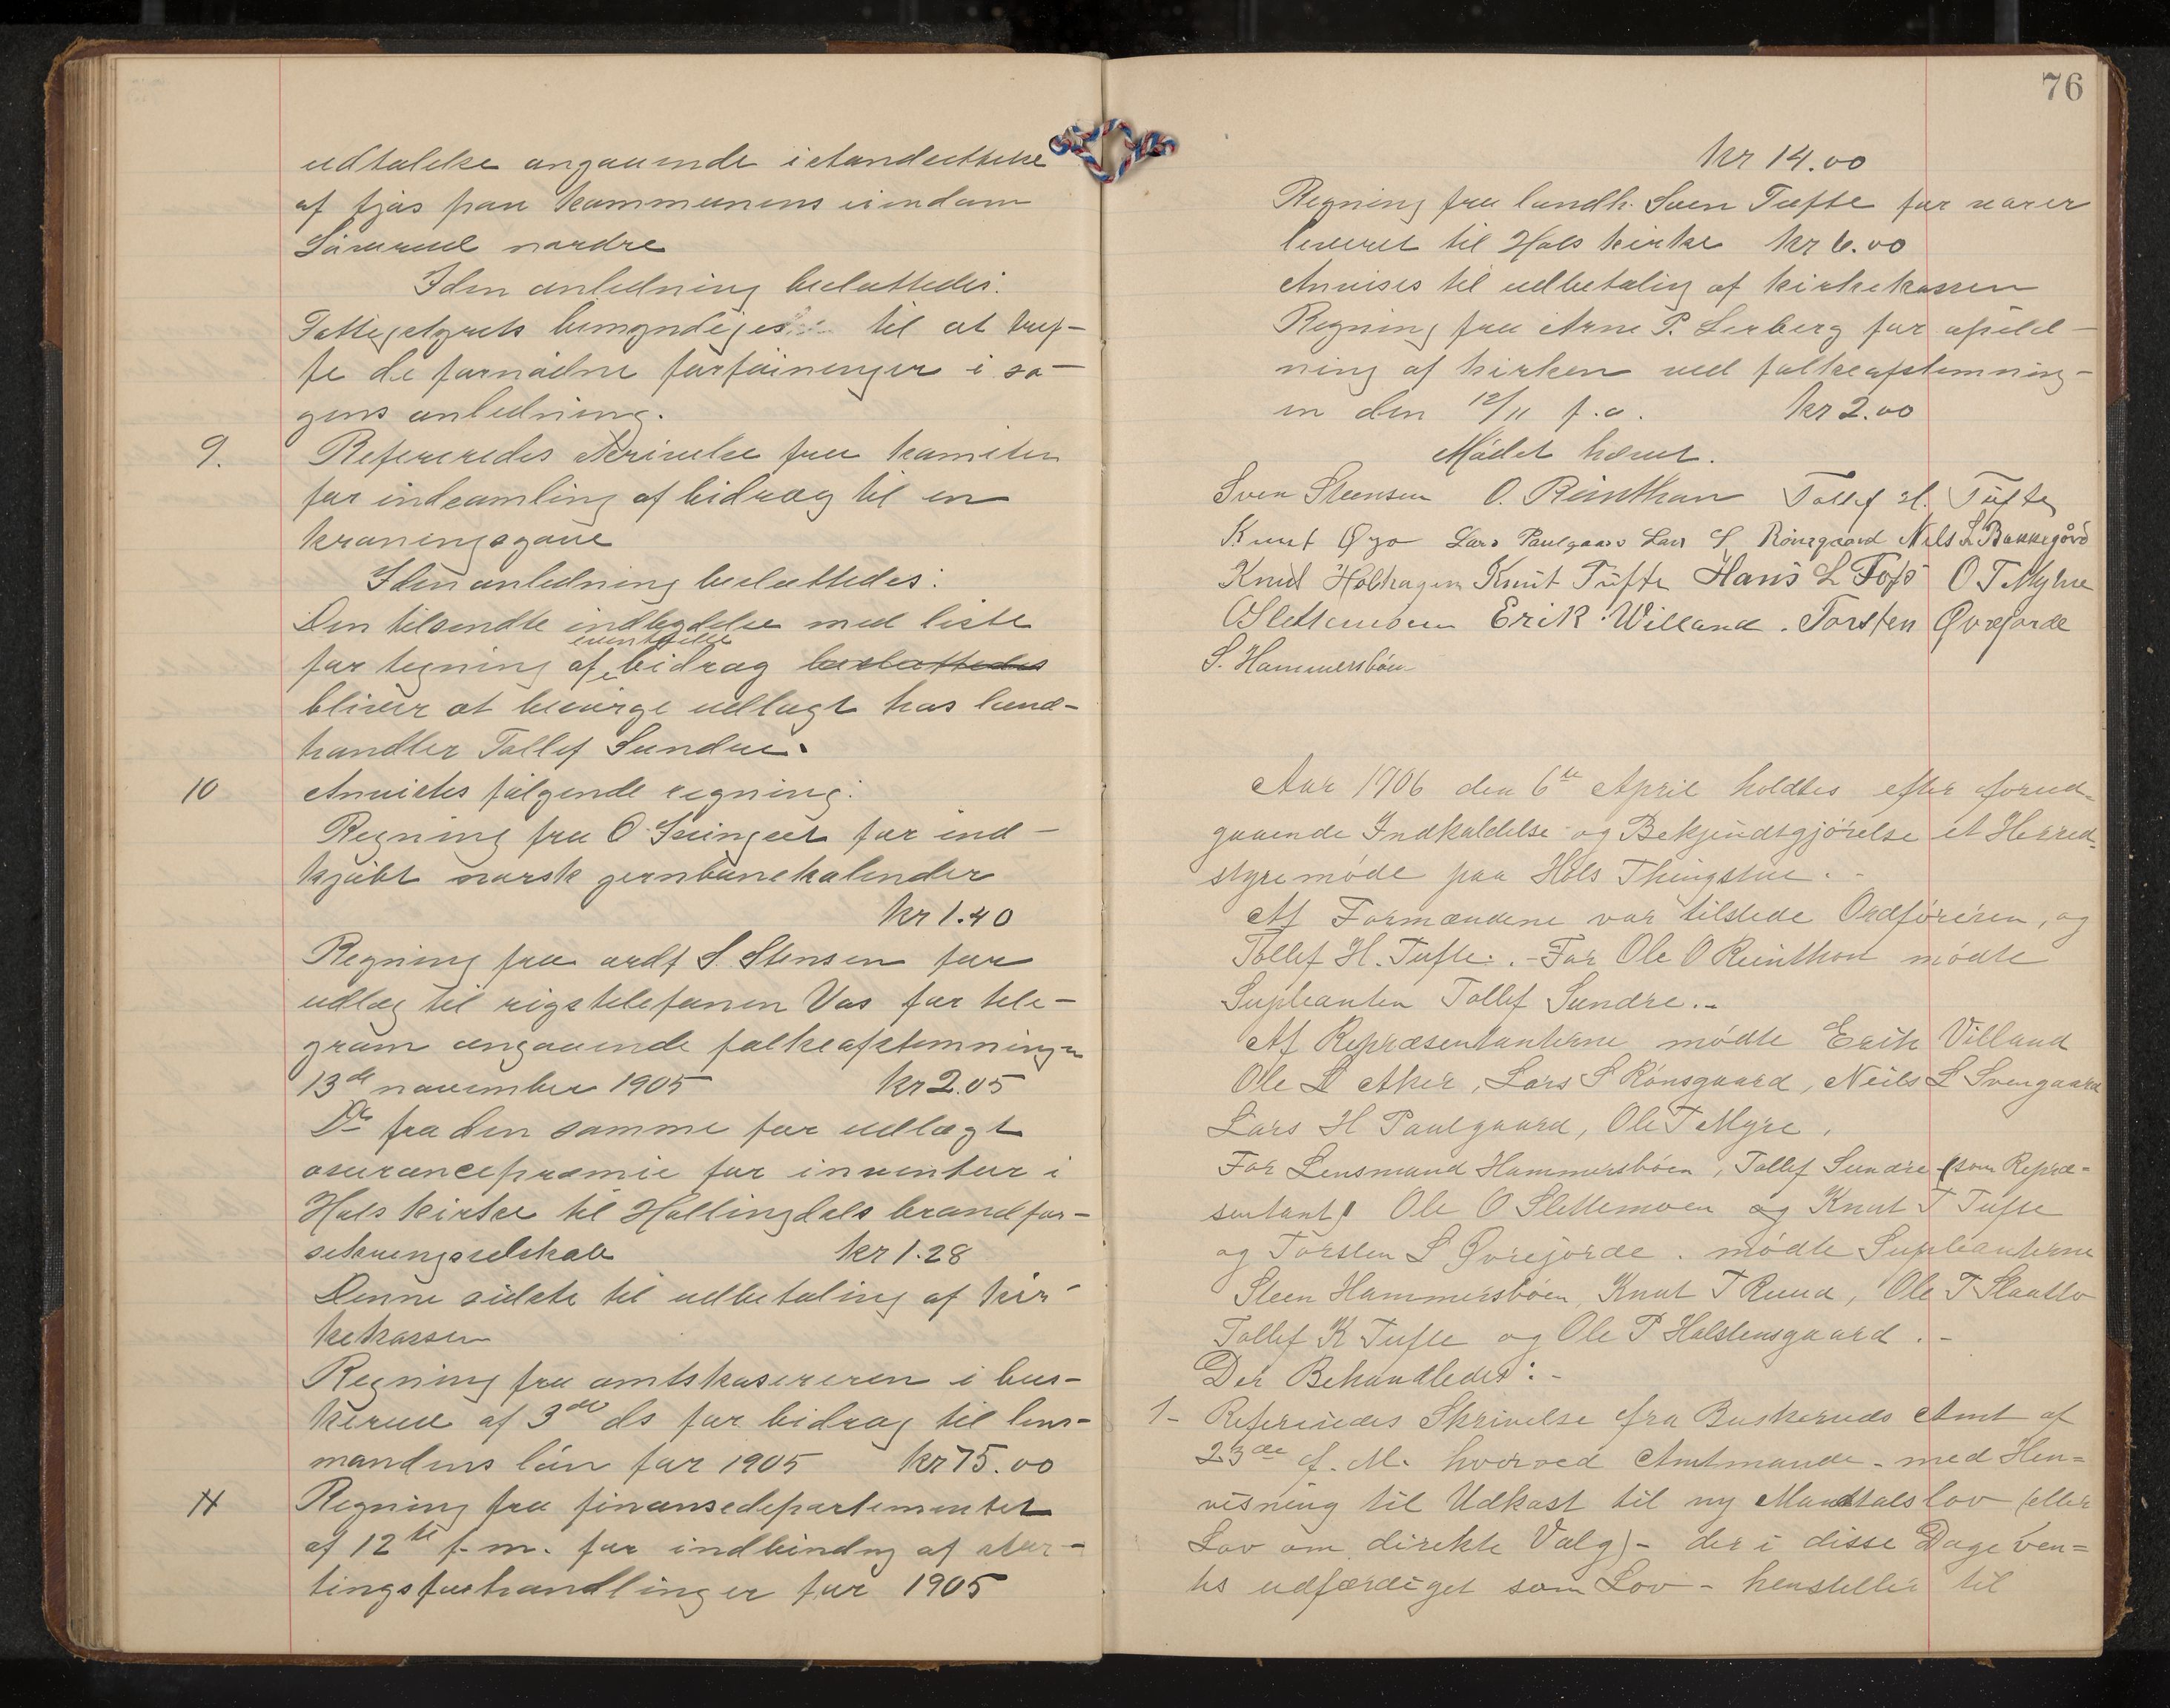 udtalelse angaaende istandsættelse
af fjøs paa kommunens eiendom
nordre
I den anledning besluttedes:
Fattigstyrets bemyndiges til at træf-
fe de fornødne forføininger i sa-
gens anledning.
9. Refereredes skrivelse fra komiteen
for indsamling af bidrag til en
kroningsgave
I den anledning besluttedes:
Den tilsendte indbydelse med liste
eventuelle
for tegning af bidrag besluttedes
bliver at besørge udlagt hos land-
handler Tollef Sundre.
10 Anvistes følgende regning:
Regning fra O for ind-
kjøbt norsk jernbanekalender
kr 1.40
Regning fra ordf S. Stensen for
udlæg til rigstelefonen Vos for tele-
gram angaaende folkeafstemningen
13de november 1905 kr 2.05
Do fra den samme for udlagt
asurancepræmie for inventar i
Hols kirke til Hallingdals brandfor-
sikringsselskab kr 1.28
Denne sidste til udbetaling af kir-
kekassen
Regning fra amtskasereren i bus-
kerud af 3de ds for bidrag til lens-
mandens løn for 1905 kr 75.00
11 Regning fra finansedepartementet
af 12te f.m. for indbinding af stor-
tingsforhandlinger for 1905
76
kr 14.00
Regning fra landh. Sven Tufte for varer
leveret til Hols kirke kr 6.00
Anvises til udbetaling af kirkekassen
Regning fra Arne P. Lerberg for opild-
ning af kirken ved folkeafstemning-
en den 12/11 f.a. kr 2.00
Mødet hævet.
Sven Steensen O. Reinthon Tollef H. Tufte
Knut Øyo Lars Paulgaard Lars S. Rønsgaard Nils L Bakkegård
Knud Holhagen Knut Tufte Hans L Foss O T Myhre
O Slettemoen Erik Willand. Torsten Øvrejorde
S. Hammersbøen
Aar 1906 den 6te April holdtes efter forud-
gaaende Indkaldelse og Bekjendtgjørelse et Herred-
styremøde paa Hols Thingstue. -
Af Formændene var tilstede Ordføreren, og
Tollef H. Tufte. - For Ole O Reinthon mødte
Supleanten Tollef Sundre. -
Af Repræsentanterne mødte Erik Villand
Ole L Aker, Lars S Rønsgaard, Neils L Svengaard
Lars H Paulgaard, Ole T Myre,
For Lensmand Hammersbøen, Tollef Sundre (som Repræ-
sentant) Ole O Slettemoen og Knut T Tufte
og Torsten S Øvrejorde. mødte Supleanterne
Steen Hammersbøen, Knut T Ruud, Ole T Slaatto
Tollef K Tufte og Ole P Holstensgaard. -
Der Behandledes: -
1- Refereredes Skrivelse fra Buskeruds Amt af
23de f.M. hvorved Amtmanden - med Hen-
visning til Udkast til ny Mandtalslov (eller
Lov om direkte Valg) - der i disse Dage ven-
tes udfærdiget som Lov - henstiller til